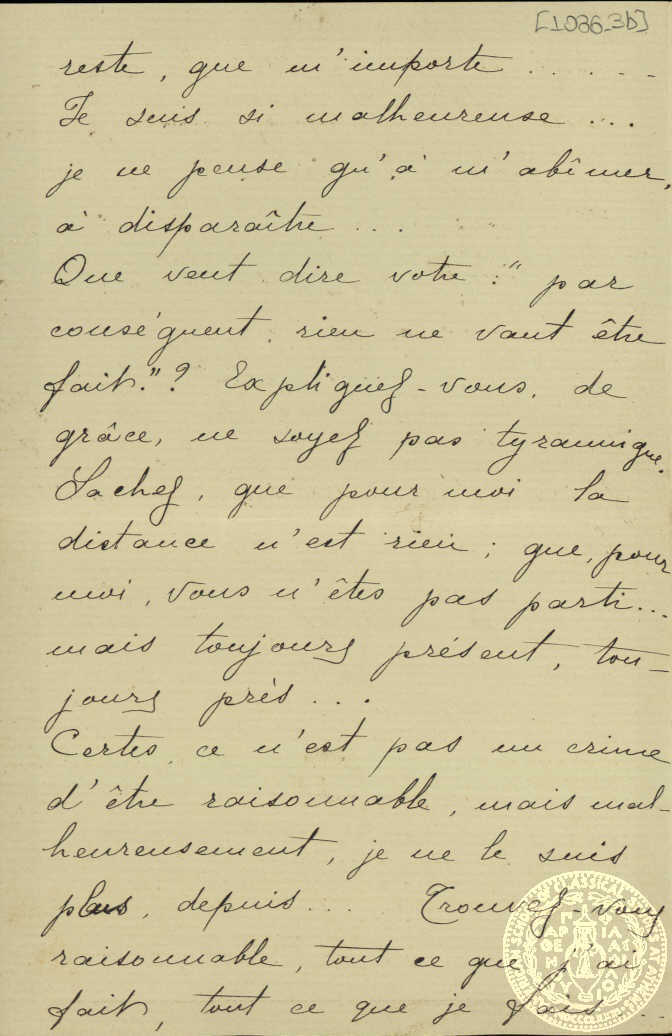 [1086-3b]
reste, que m'importe . . . . . .
Je suis si malheureuse . . .
je ne pense qu'à m'abîmer,
à disparaître . . .
Que veut dire votre : " par
conséquent rien ne vaut être
fait." ? Expliquez-vous, de
grâce, ne soyez pas tyrannique.
Sachez, que pour moi la
distance n'est rien ; que, pour
moi, vous n'êtes pas parti . . .
mais toujours présent, tou-
jours près . . .
Certes, ce n'est pas un crime
d'être raisonnable, mais mal-
heureusement, je ne le suis
plus, depuis . . . Trouvez-vous
raisonnable, tout ce que j'ai
fait, tout ce que je fais . . .